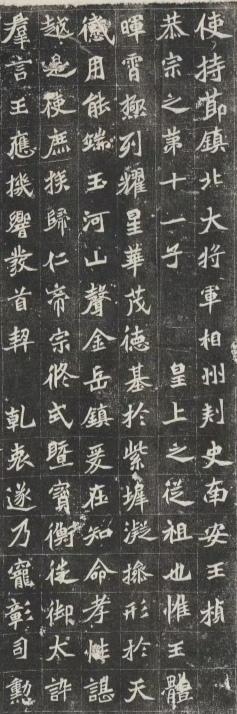 使持節鎮北大將軍相州刺史南安王楨
恭宗之第十一子　皇上之從祖也惟王體
暉霄極列耀星華茂德基於紫墀凝操形於天
儀用能端玉河山聲金岳鎮爰在知命孝性諶
越是使庶族歸仁帝宗攸式暨寶衡徙御大訊
羣言王應機響發首契　乾衷遂乃寵彰司勳